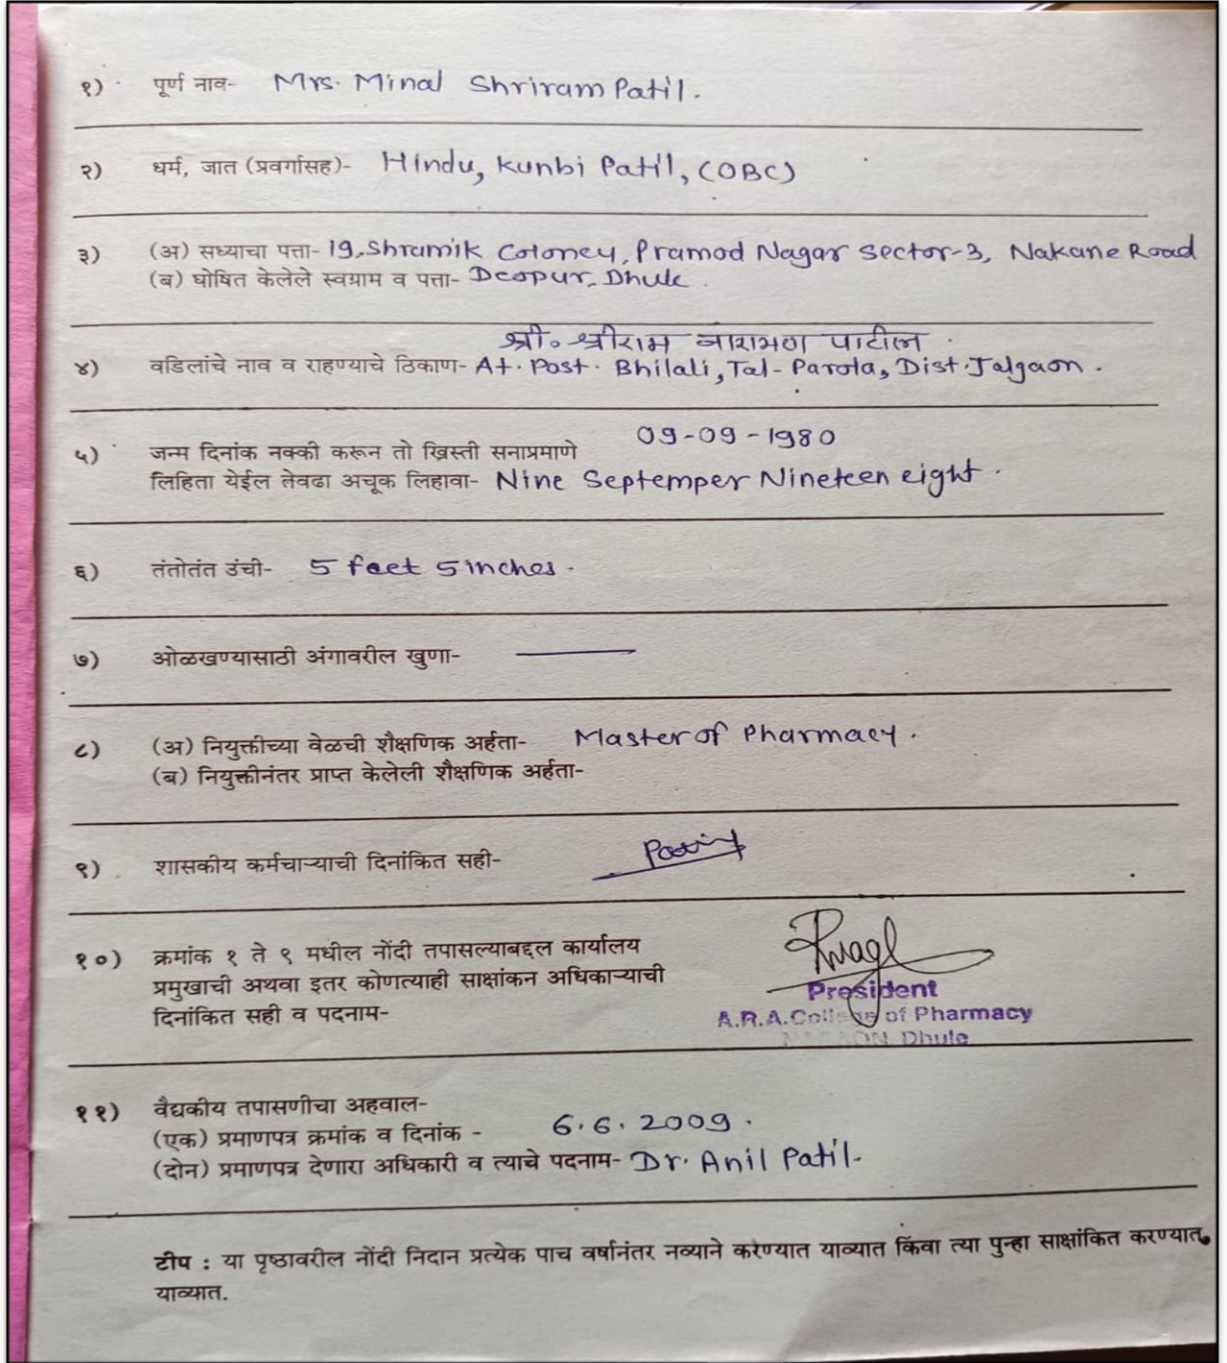 १) पूर्ण नाव- Mrs. Minal Shriram Patil.
२) धर्म, जात (प्रवर्गासह)- Hindu, Kunbi Patil, (OBC)
३) (अ) सध्याचा पत्ता- 19, Shramik Coloney, Pramod Nagar Sector-3, Nakane Road
(ब) घोषित केलेले स्वग्राम व पत्ता- Deopur, Dhule.
श्री. श्रीराम नारायण पाटील.
४) वडिलांचे नाव व राहण्याचे ठिकाण- At. Post. Bhilali, Tal- Parola, Dist. Jalgaon.
09-09-1980
५) जन्म दिनांक नक्की करून तो ख्रिस्ती सनाप्रमाणे
लिहिता येईल तेवढा अचूक लिहावा- Nine Septemper Nineteen eight.
६) तंतोतंत उंची- 5 feet 5 inches.
७) ओळखण्यासाठी अंगावरील खुणा-
८) (अ) नियुक्तीच्या वेळची शैक्षणिक अर्हता- Master of Pharmacy.
(ब) नियुक्तीनंतर प्राप्त केलेली शैक्षणिक अर्हता-
९) शासकीय कर्मचाऱ्याची दिनांकित सही-
१०) क्रमांक १ ते ९ मधील नोंदी तपासल्याबद्दल कार्यालय
प्रमुखाची अथवा इतर कोणत्याही साक्षांकन अधिकाऱ्याची
दिनांकित सही व पदनाम-
President
A.R.A. College of Pharmacy
Dhule
११) वैद्यकीय तपासणीचा अहवाल-
(एक) प्रमाणपत्र क्रमांक व दिनांक - 6.6.2009.
(दोन) प्रमाणपत्र देणारा अधिकारी व त्याचे पदनाम- Dr. Anil Patil-
टीप : या पृष्ठावरील नोंदी निदान प्रत्येक पाच वर्षानंतर नव्याने करेण्यात याव्यात किंवा त्या पुन्हा साक्षांकित करण्यात
याव्यात.